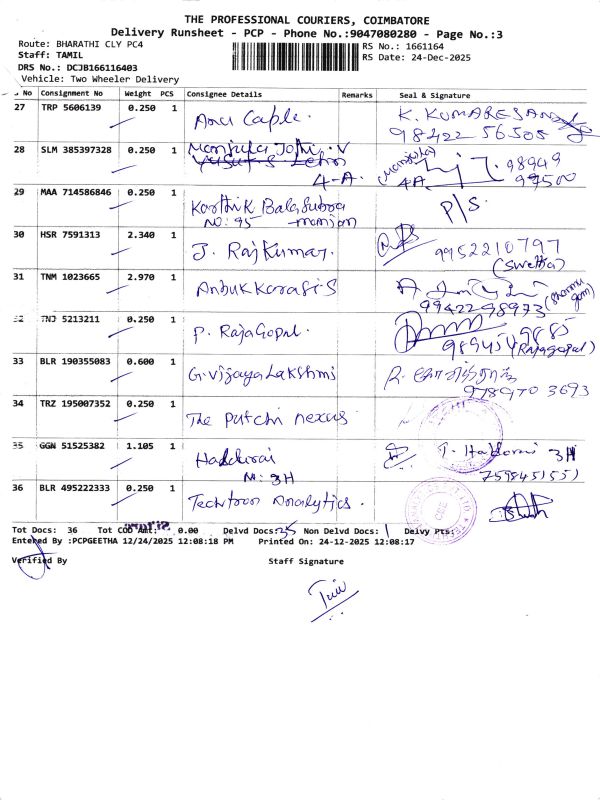 THE PROFESSIONAL COURIERS, COIMBATORE
Delivery Runsheet - PCP - Phone No.:9047080280 - Page No.:3
Route: BHARATHI CLY PC4 RS No.: 1661164
Staff: TAMIL RS Date: 24-Dec-2025
DRS No.: DCJB166116403
Vehicle: Two Wheeler Delivery
No Consignment No Weight PCS Consignee Details Remarks Seal & Signature
27 TRP 5606139 0.250 1 Anu Caple. K. KUMARESAN
98422 56505
28 SLM 385397328 0.250 1 Manjula Jothi. V (Manjula) 98949
4-A. 4A 99500
29 MAA 714586846 0.250 1 Karthik Balasubra P/S.
No: 95 manian
30 HSR 7591313 2.340 1 J. Rajkumar. 9952210797
(Swetha)
31 TNM 1023665 2.970 1 Anbukkarasi.S
9942298973
TND 5213211 0.250 1 P. RajaGopal.
(Rajagopal)
33 BLR 190355083 0.600 1 G.vijayaLakshmi
9789703693
34 TRZ 195007352 0.250 1 The putchi nexus
35 GGN 51525382 1.105 1 Haddurai 3H
N: 3H 759845155)
36 BLR 495222333 0.250 1 Techtoon Analytics.
Tot Docs: 36 Tot COD Amt: 0.00 Delvd Docs:35 Non Delvd Docs:1 Delvy Pts:
Entered By :PCPGEETHA 12/24/2025 12:08:18 PM Printed On: 24-12-2025 12:08:17
Verified By Staff Signature